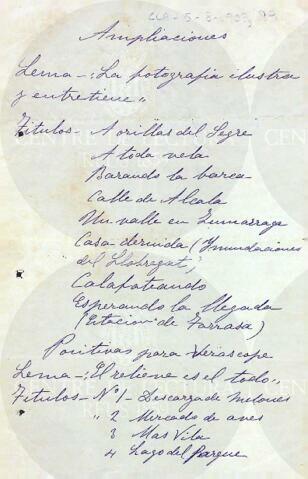 CCA-5-8-1903, 99
Ampliaciones
Lema - "La fotografia ilustra
y entretiene"
Titulos - A orillas del Segre
A toda vela
Barando la barca
Calle de Alcala
Un valle en Zumarraga
Casa derruida (Ynundaciones
del Llobregat)
Calafateando
Esperando la llegada
(Estacion de Tarrasa)
Positivas para Verascope
Lema - "El relieve es el todo"
Titulos - Nº 1 - Descarga de Melones
" 2 Mercado de aves
3 Mas Vila
4 Lago del Parque